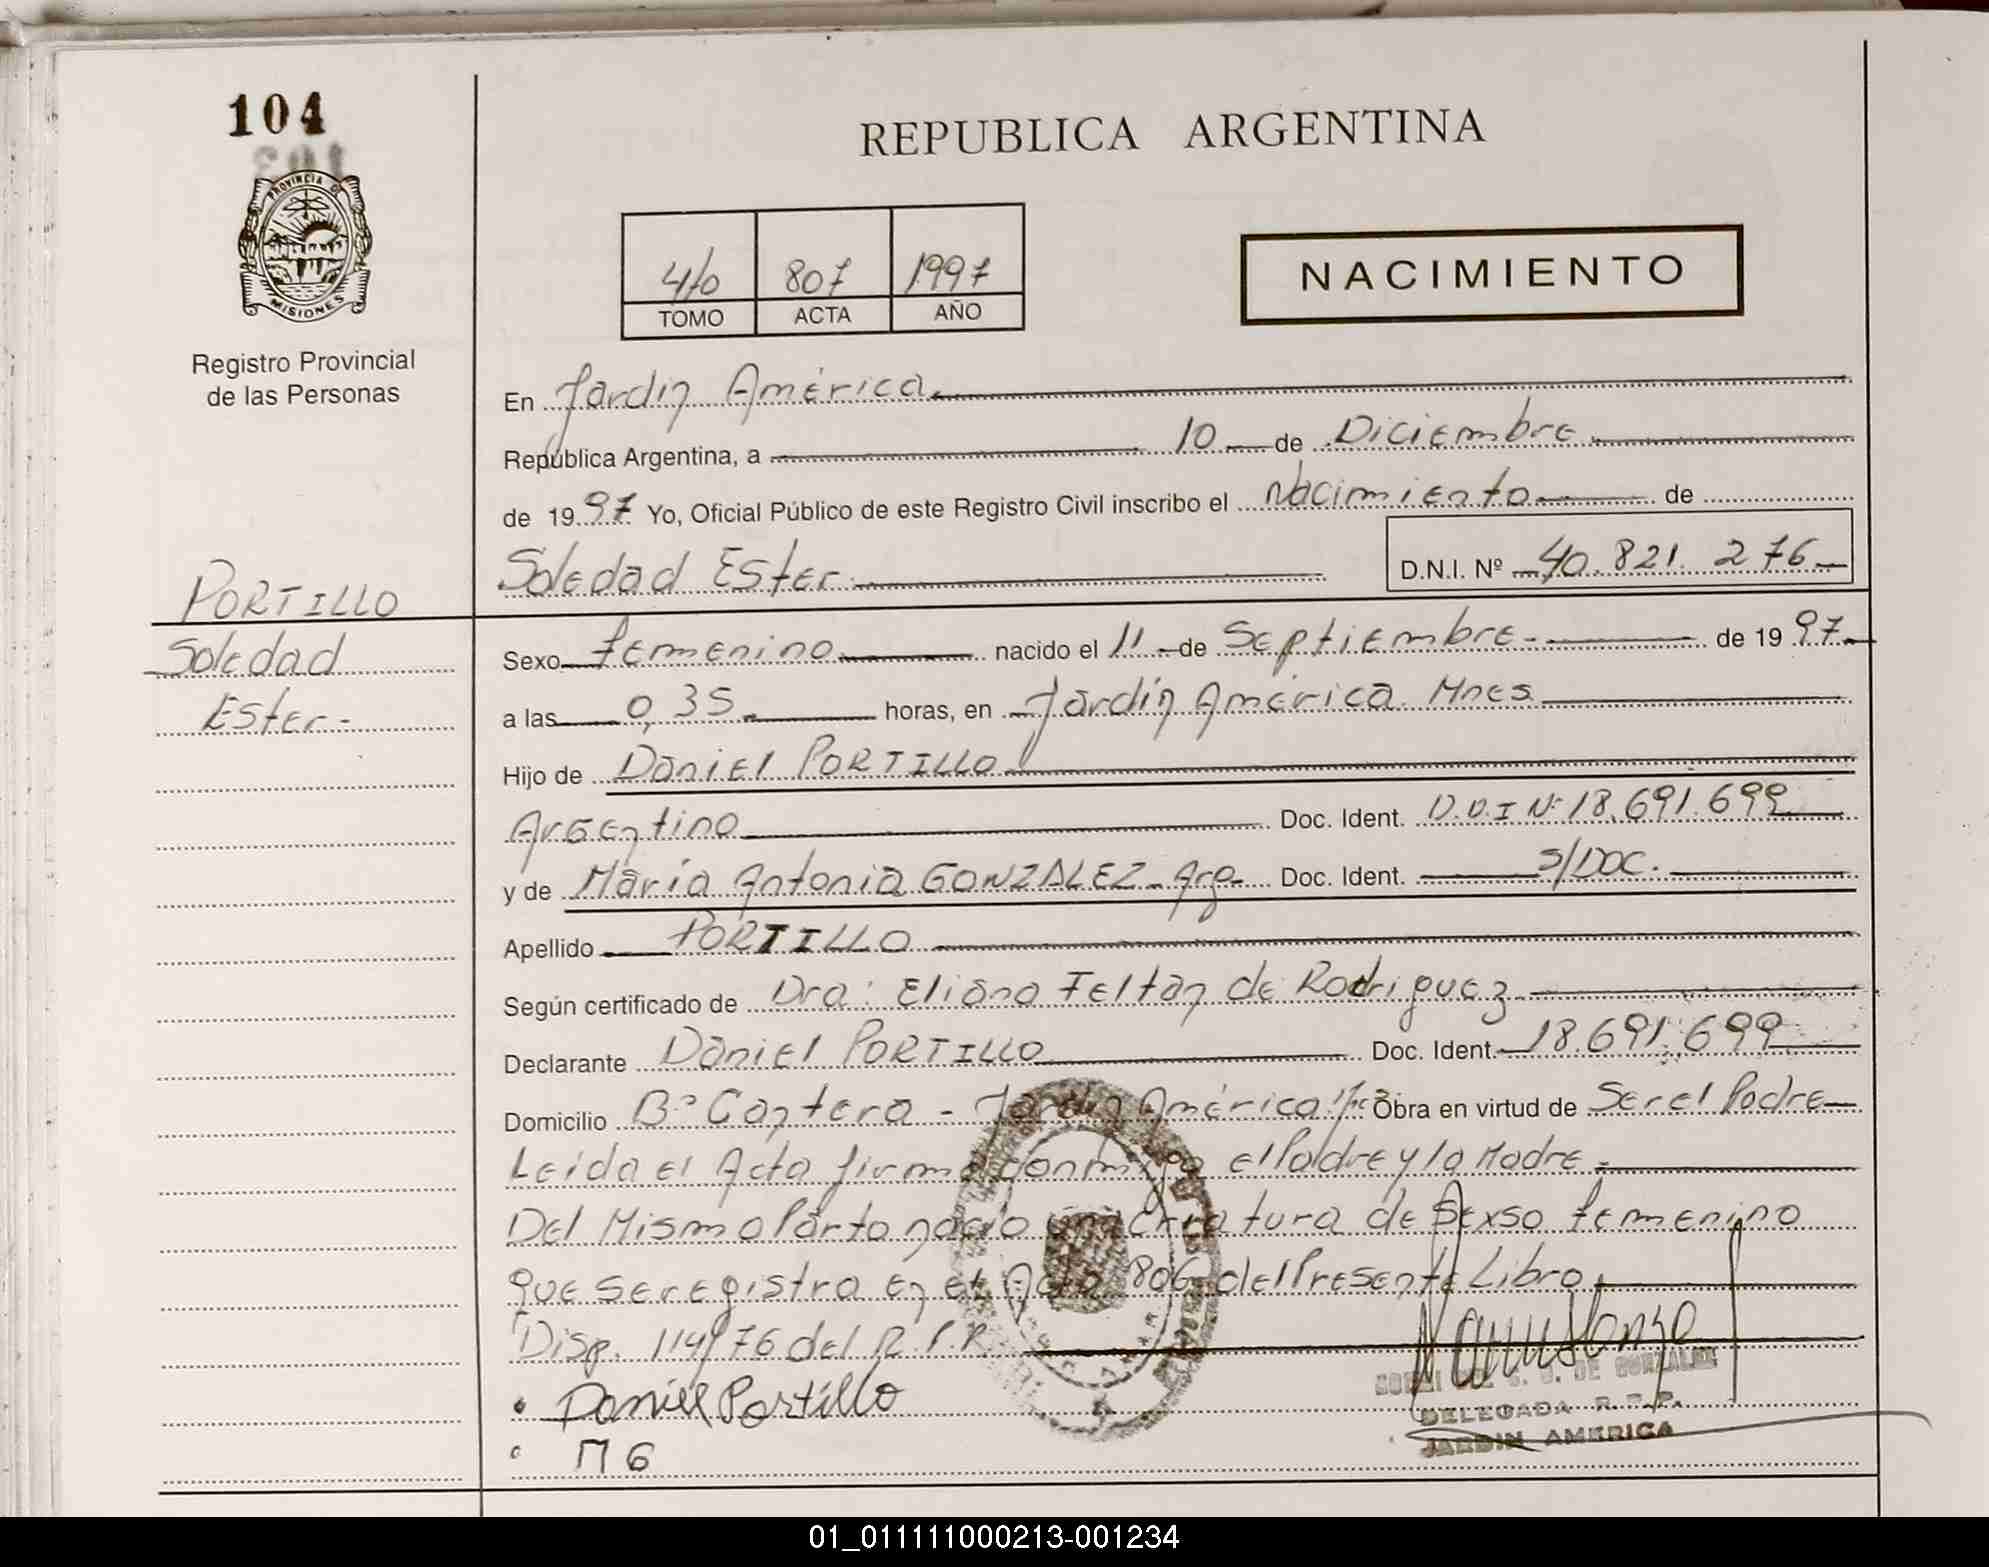 104
PROVINCIA DE
MISIONES
Registro Provincial
de las Personas
REPUBLICA ARGENTINA
4/0 807 1997
TOMO ACTA AÑO
NACIMIENTO
En Jardín América
República Argentina, a 10 de Diciembre
de 1997 Yo, Oficial Público de este Registro Civil inscribo el Nacimiento de
Soledad Ester D.N.I. Nº 40.821.276
PORTILLO
Soledad
Ester.-
Sexo femenino nacido el 11 de Septiembre de 1997
a las 0,35 horas, en Jardín América. Mnes.
Hijo de Daniel PORTILLO
Argentino Doc. Ident. D.N.I Nº 18.691.699
y de María Antonia GONZALEZ - Arg. Doc. Ident. S/DOC.
Apellido PORTILLO
Según certificado de Dra: Eliana Feltan de Rodriguez
Declarante Daniel PORTILLO Doc. Ident. 18.691.699
Domicilio Bº Cantera - Jardín América Obra en virtud de Ser el Padre
Leída el Acta firma conmigo el Padre y la Madre.
Del Mismo Parto nació una criatura de Sexso femenino
que se registra en el Acta 806 del Presente Libro.
Disp. 114/76 del R.P.P.
Daniel Portillo
DE GONZALEZ
DELEGADA R.P.P.
JARDIN AMERICA
M G
01_011111000213-001234